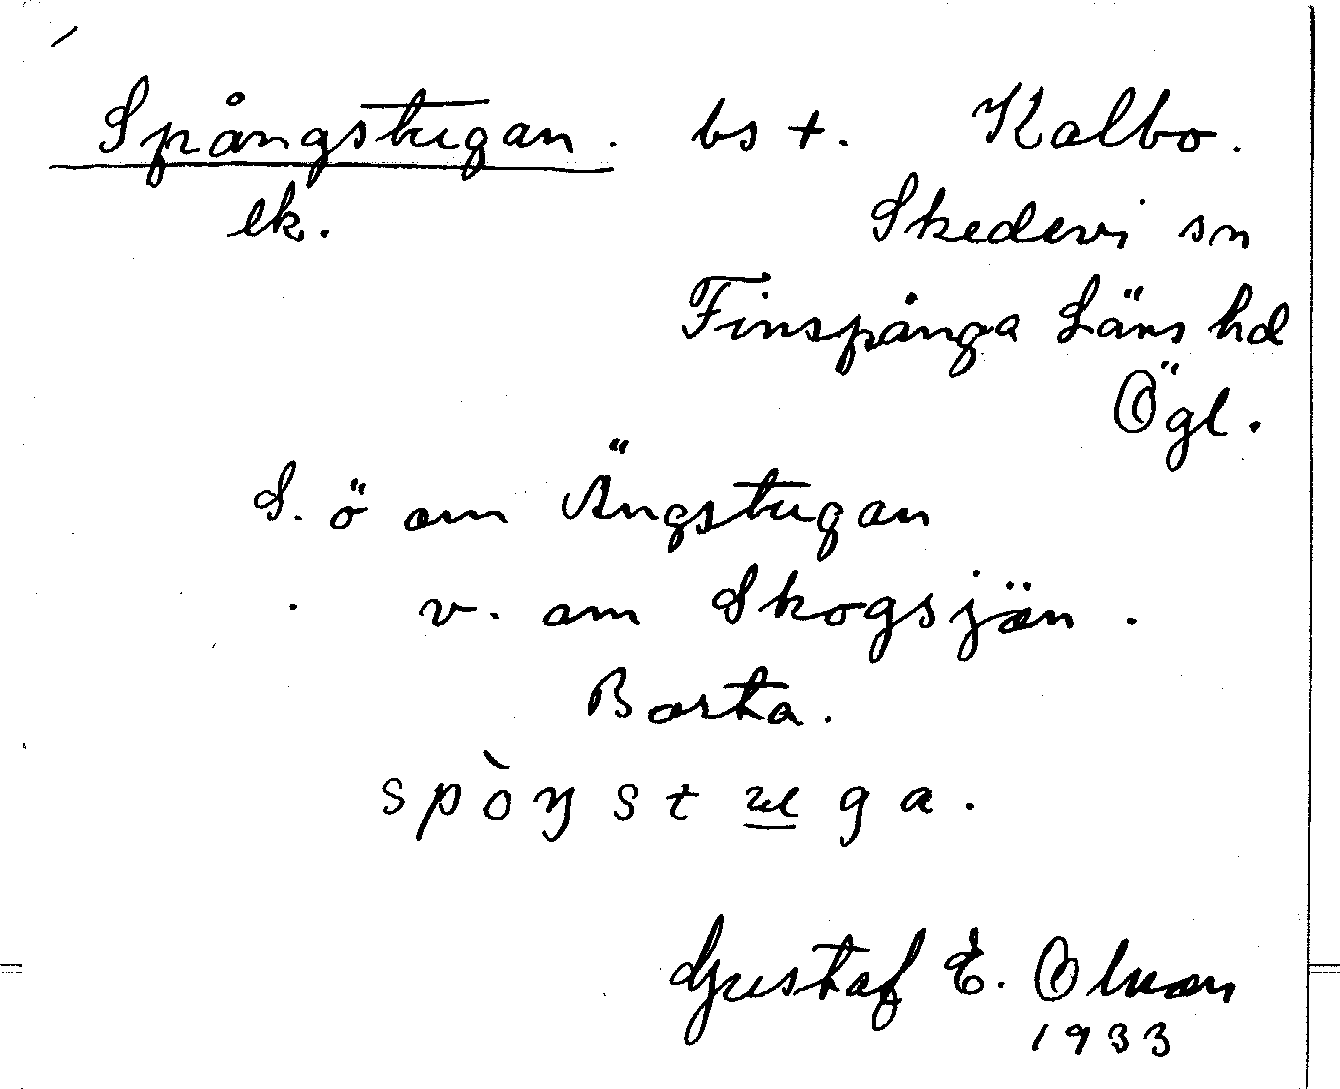 Spångstugan. bs +. Kalbo.
ek. Skedevi sn
Finspånga Läns hd
Ögl.
S. ö om Ängstugan
v. om Skogsjön.
Borta.
spòŋstu̳ga.
Gustaf E. Olson
1933